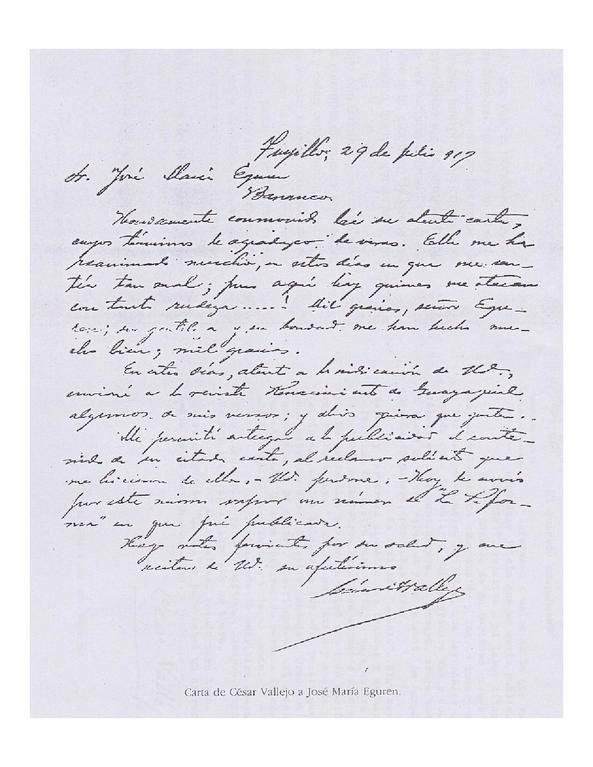 Trujillo, 29 de julio 917
Sr. José María Eguren
Barranco.
Hondamente conmovido leí su atenta carta,
cuyos términos le agradezco de veras. Ella me ha
reanimado mucho, en estos días en que me sen-
tía tan mal; pues aquí hay quienes me atacan
con tanta rudeza.....! Mil gracias, señor Egu-
ren; su gentileza y su bondad me han hecho mu-
cho bien; mil gracias.
En estos días, atento a la indicación de Ud.,
enviaré a la revista Renacimiento de Guayaquil
algunos de mis versos; y ojalá quiera que gusten..
Me permití entregar a la publicidad el conte-
nido de su citada carta, al reclamo solícito que
me hicieron de ella.- Ud. perdone.- Hoy le envío
por este mismo vapor un número de "La Refor-
ma" en que fué publicada.
Hago votos fervientes por su salud, y me
reitero de Ud. su afectísimo
César A Vallejo
Carta de César Vallejo a José María Eguren.